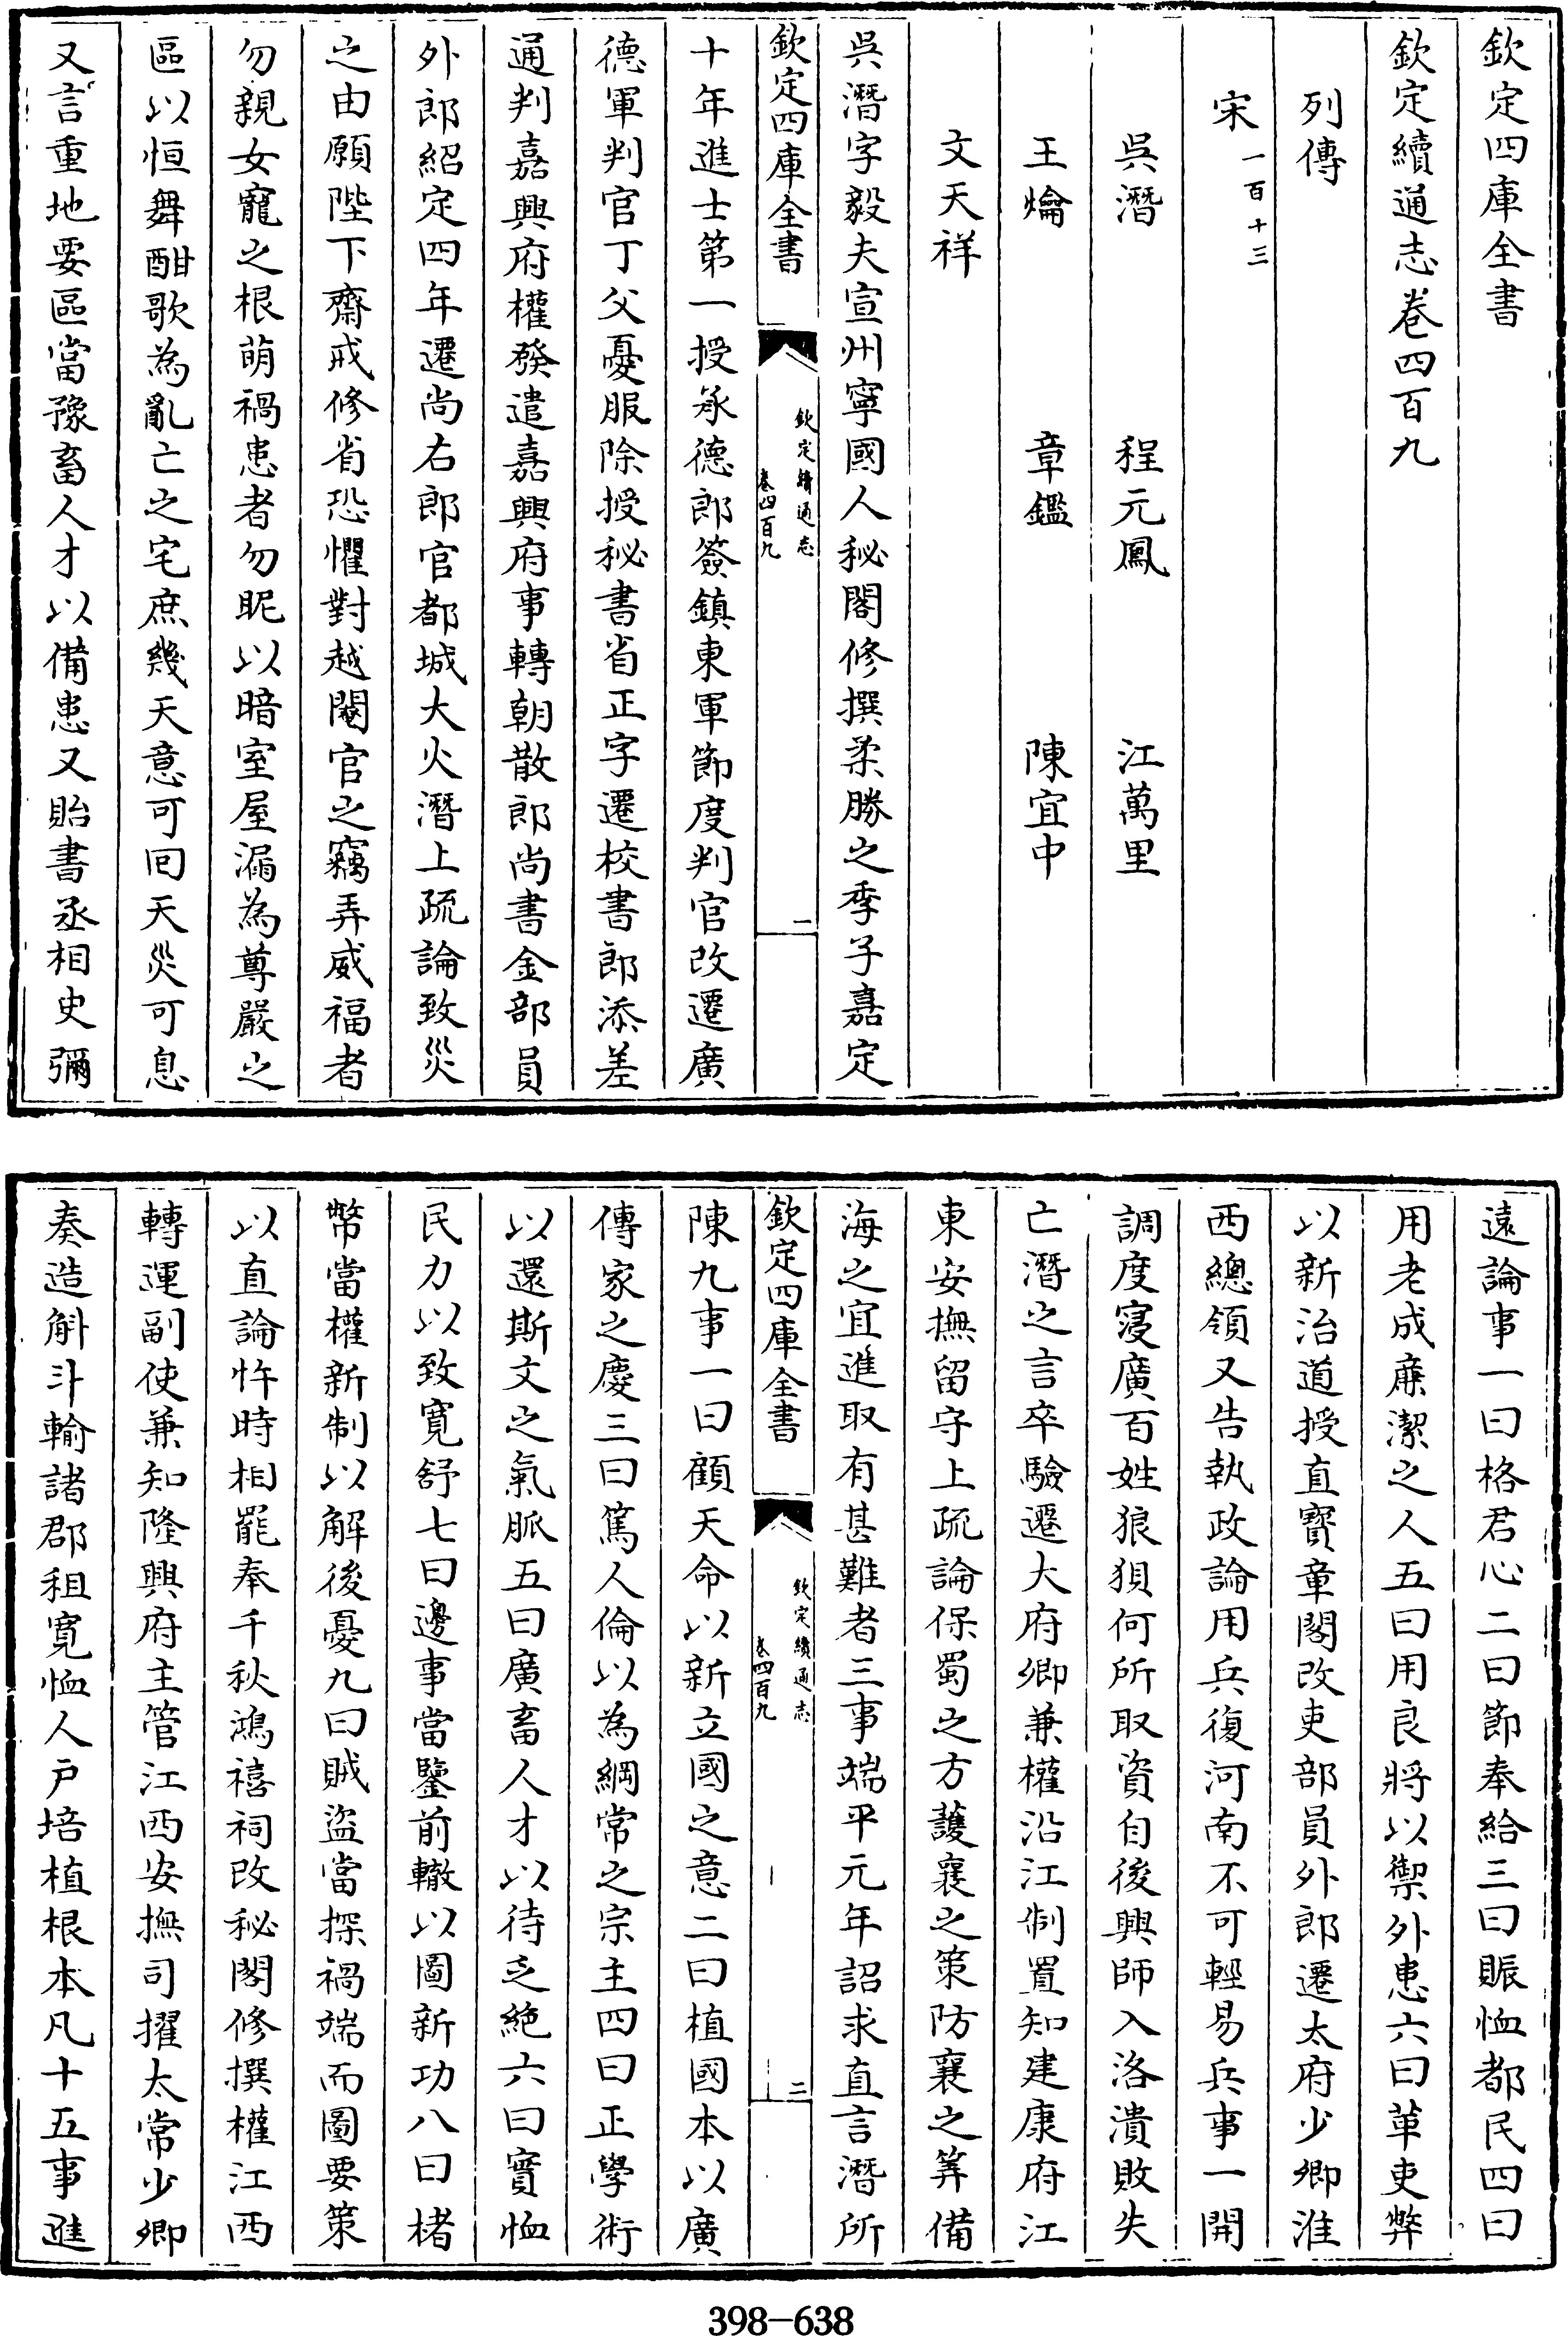 欽定四庫全書
欽定續通志卷四百九
列傳
宋一百十三
吳潛 程元鳳 江萬里
王爚 章鑑 陳宜中
文天祥
吳潛字毅夫宣州寧國人秘閣修撰柔勝之季子嘉定
欽定四庫全書 欽定續通志 卷四百九 一
十年進士第一授承德郎簽鎮東軍節度判官改遷廣
德軍判官丁父憂服除授秘書省正字遷校書郎添差
通判嘉興府權發遣嘉興府事轉朝散郎尚書金部員
外郎紹定四年遷尚右郎官都城大火潛上疏論致災
之由願陛下齋戒修省恐懼對越閹官之竊弄威福者
勿親女寵之根萌禍患者勿昵以暗室屋漏為尊嚴之
區以恒舞酣歌為亂亡之宅庶幾天意可回天災可息
又言重地要區當豫畜人才以備患又貽書丞相史彌
遠論事一曰格君心二曰節奉給三曰賑恤都民四曰
用老成廉潔之人五曰用良將以禦外患六曰革吏弊
以新治道授直寶章閣改吏部員外郎遷太府少卿淮
西總領又告執政論用兵復河南不可輕易兵事一開
調度寖廣百姓狼狽何所取資自後興師入洛潰敗失
亡潛之言卒驗遷大府卿兼權沿江制置知建康府江
東安撫留守上疏論保蜀之方護襄之策防襄之筭備
海之宜進取有甚難者三事端平元年詔求直言潛所
欽定四庫全書 欽定續通志 卷四百九 二
陳九事一曰顧天命以新立國之意二曰植國本以廣
傳家之慶三曰篤人倫以為綱常之宗主四曰正學術
以還斯文之氣脈五曰廣畜人才以待乏絕六曰實恤
民力以致寬舒七曰邊事當鑒前轍以圖新功八曰楮
幣當權新制以解後憂九曰賊盜當探禍端而圖要策
以直論忤時相罷奉千秋鴻禧祠改秘閣修撰權江西
轉運副使兼知隆興府主管江西安撫司擢太常少卿
奏造斛斗輸諸郡租寬恤人戶培植根本凡十五事進
398-638